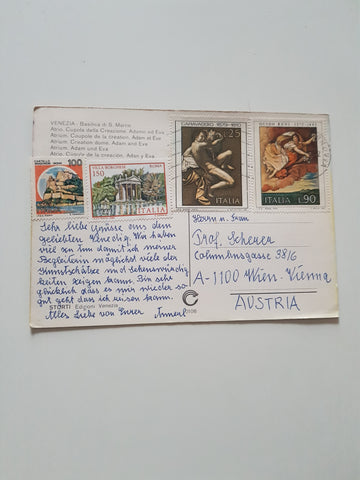 VENEZIA - Basilica di S. Marco
Atrio. Cupola della Creazione. Adamo ed Eva
Atrium. Coupole de la création. Adam et Eve
Atrium. Creation dome. Adam and Eve
Atrium. Adam und Eva
Atrio. Cupola de la creación. Adan y Eva
100
150
VILLA BORGHESE ROMA
ITALIA
CARAVAGGIO 1609-1610
L.25
ITALIA
GUIDO RENI 1575-1642
ITALIA L.90
Sehr liebe Grüsse aus dem
geliebten Venedig. Wir haben
viel vor um damit ich meiner
Begleiterin möglichst viele der
Kunstschätze und Sehenswürdig
keiten zeigen kann. Bin sehr
glücklich dass es mir wieder so
gut geht dass ich reisen kann.
Alles Liebe von Eurer Annerl
Herrn u. Frau
Prof. Scherer
Columbusgasse 38/6
A-1100 Wien-Vienna
AUSTRIA
STORTI Edizioni Venezia